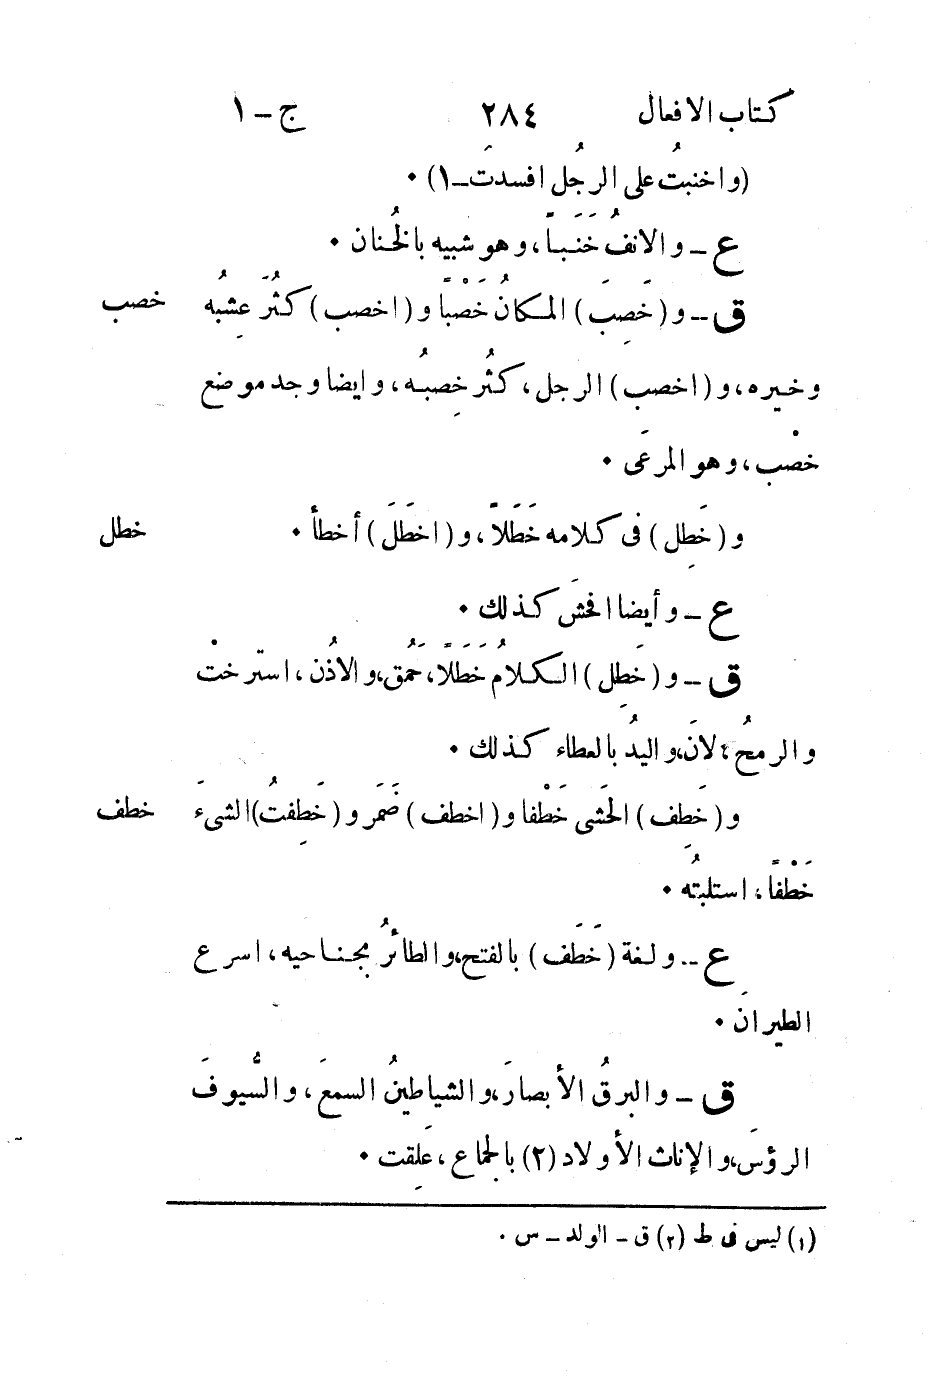 كتاب الافعال ٢٨٤ ج – ١
(واخنبتُ على الرجُل افسدتَ–١) •
ع – والانفُ خَنَباً، وهو شبيه بالخُنان •
ق – و (خَصِبَ) المكانُ خَصْبًا و (اخصب) كثُرَ عِشبُه خصب
وخيره، و (اخصب) الرجل، كثُر خِصبُه، وايضا وجد موضع
خصْب، وهو المرعَى •
و (خَطِل) فى كلامه خَطَلاً، و (اخطَلَ) أخطأ • خطل
ع – وأيضا افحشَ كذلك •
ق – و (خَطِل) الكلامُ خَطَلًا، حَمُق، والاذُن، استرختْ
والرمحُ، لانَ، واليدُ بالعطاء كذلك •
و (خَطِف) الحَشى خَطْفا و (اخطف) ضَمَر و (خَطِفتُ) الشىءَ خطف
خَطْفاً، استلبتُه •
ع – ولغة (خَطَف) بالفتح، والطائرُ بجناحيه، اسرع
الطيرانَ •
ق – والبرقُ الأبصارَ، والشياطينُ السمعَ، والسُّيوفَ
الرؤسَ، والإناث الأولاد (٢) بالجماع، عَلِقت •
(١) ليس فى ط (٢) ق – الولد – س .